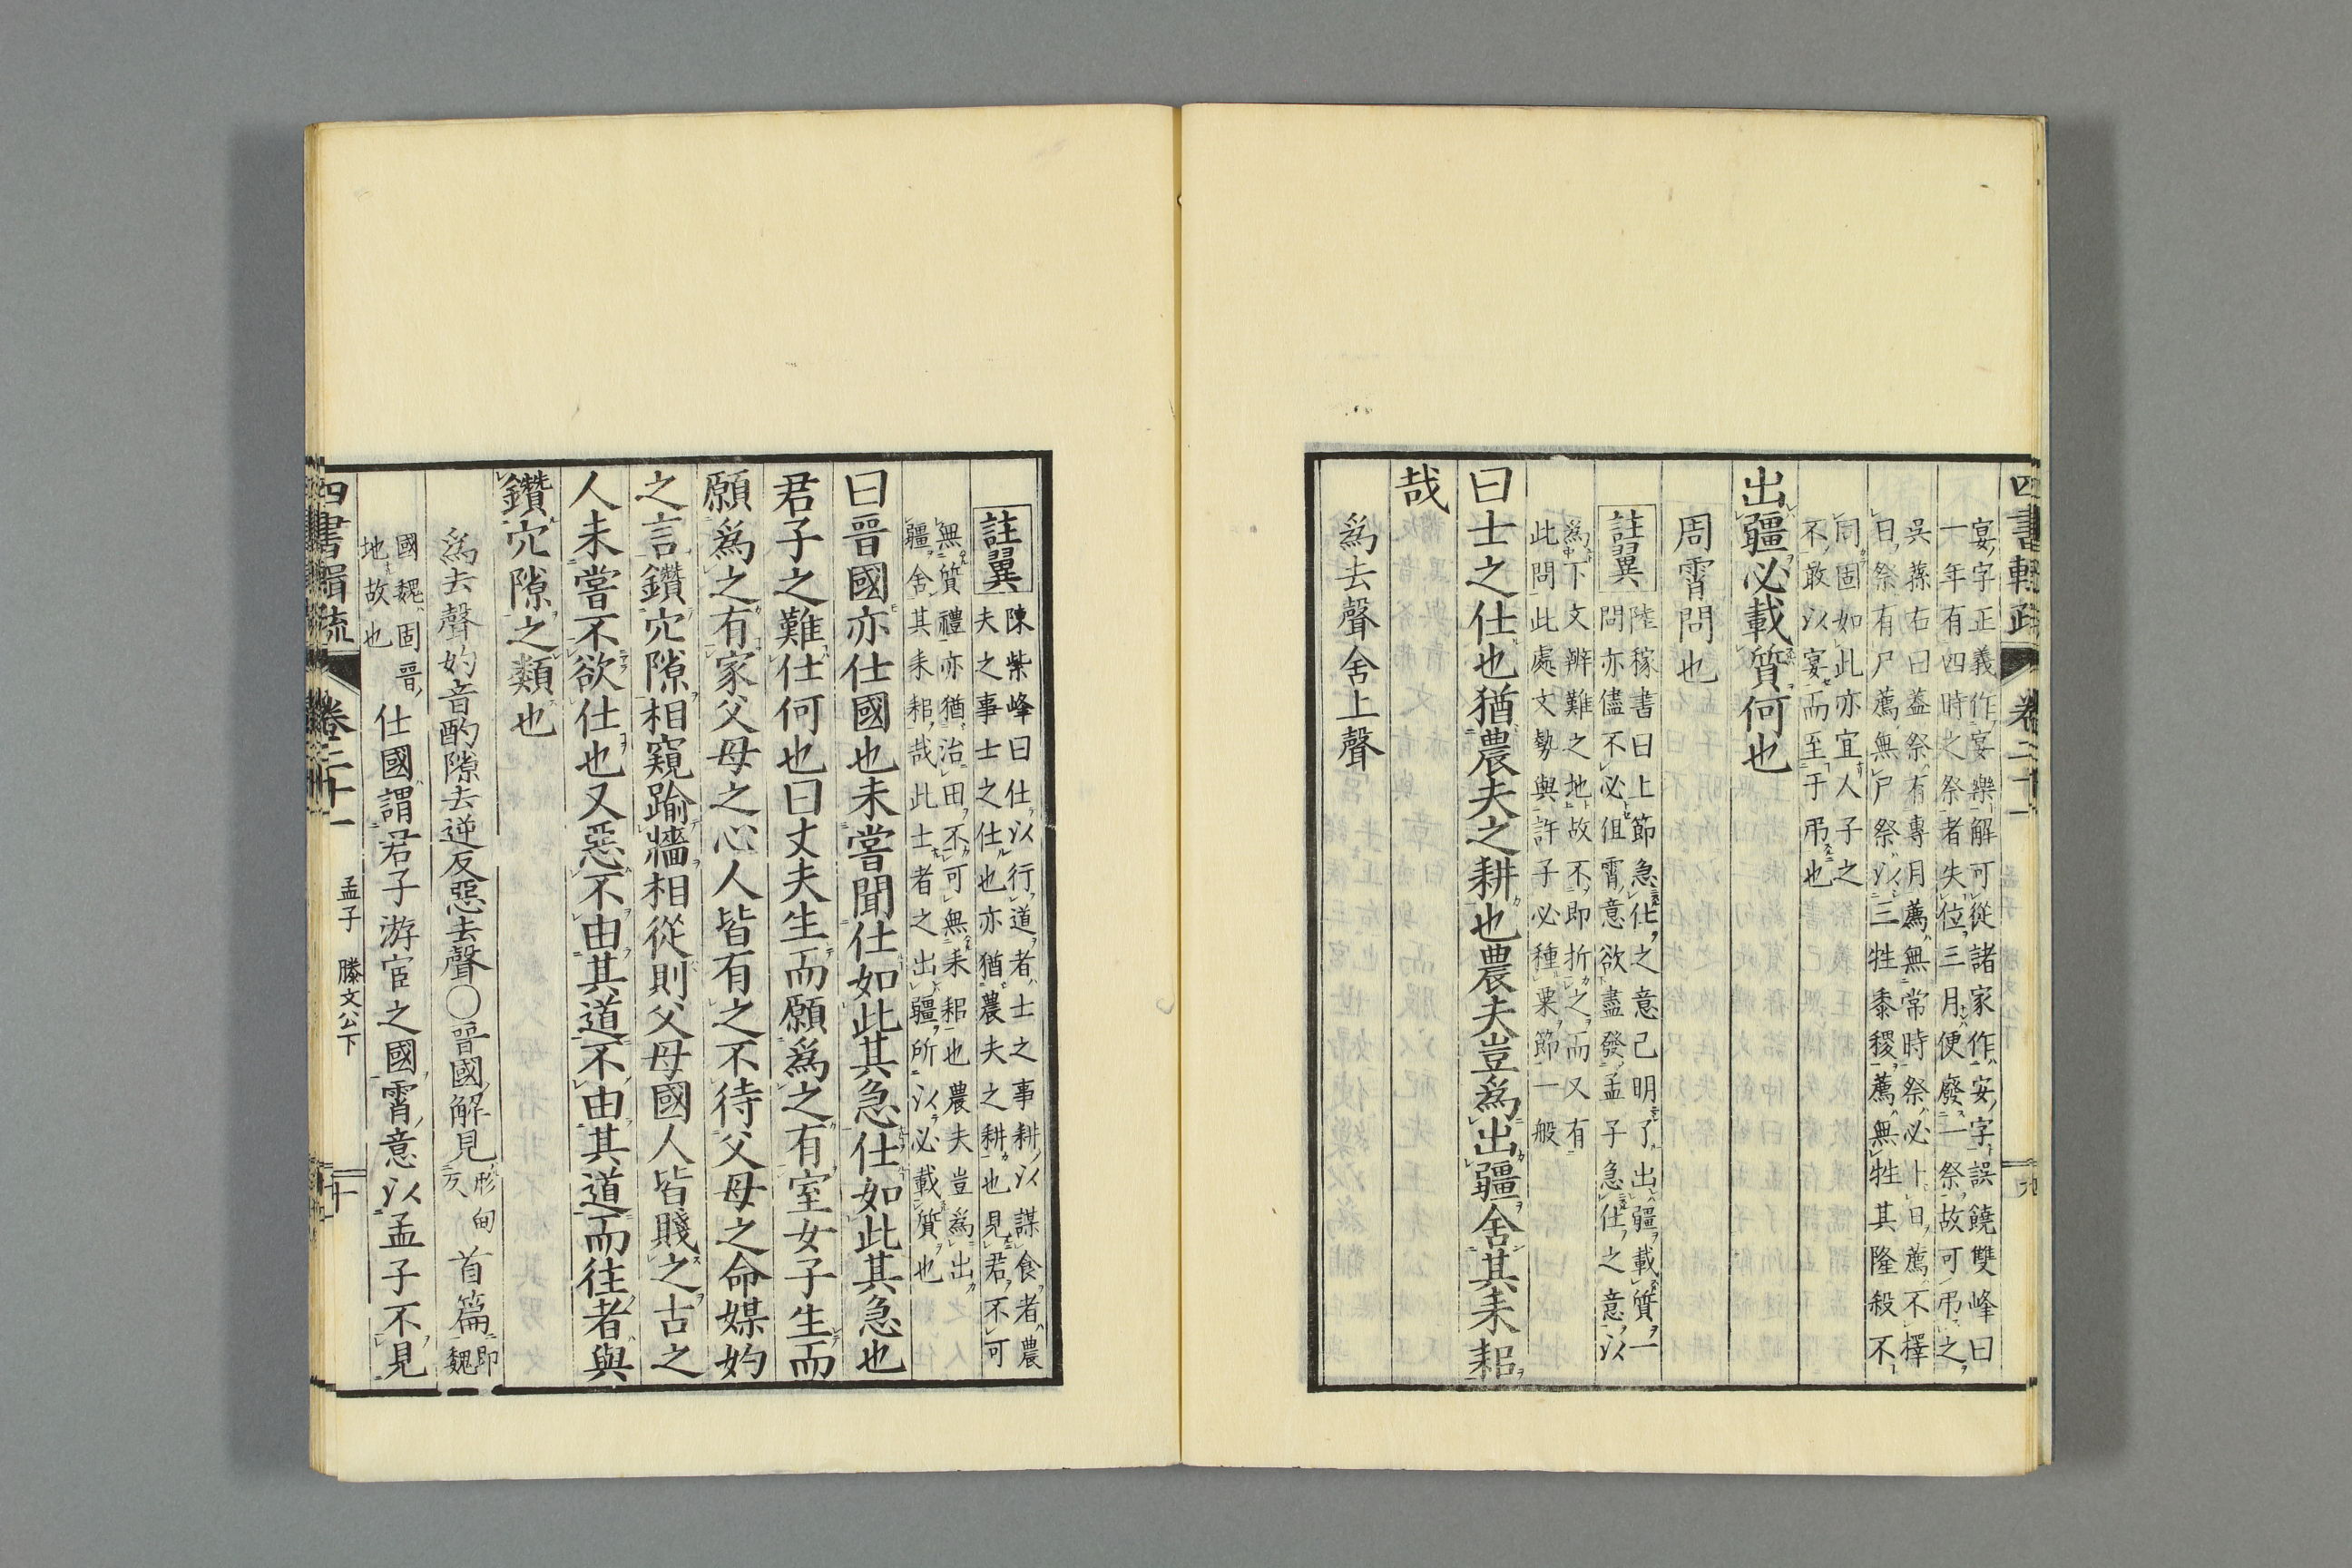 四書輯疏 卷二十一 九
宴字正義作宴樂解可從諸家作安字誤饒雙峰曰
一年有四時之祭者失位三月便廢一祭故可弔之
吳蓀右曰葢祭有專月薦無常時祭必卜日薦不擇
日祭有尸薦無尸祭以三牲黍稷薦無牲其隆殺不
同固如此亦宜人子之
不敢以宴而至于弔也
出疆必載質何也
周霄問也
註翼 陸稼書曰上節急仕之意已明了出疆載質一
問亦儘不必但霄意欲盡發孟子急仕之意以
爲下文辨難之地故不即折之而又有
此問此處文勢與許子必種粟節一般
曰士之仕也猶農夫之耕也農夫豈爲出疆舍其耒耜
哉
爲去聲舍上聲
註翼 陳紫峰曰仕以行道者士之事耕以謀食者農
夫之事士之仕也亦猶農夫之耕也見君不可
無質禮亦猶治田不可無耒耜也農夫豈爲出
疆舍其耒耜哉此士者之出疆所以必載質也
曰晉國亦仕國也未嘗聞仕如此其急仕如此其急也
君子之難仕何也曰丈夫生而願爲之有室女子生而
願爲之有家父母之心人皆有之不待父母之命媒妁
之言鑽穴隙相窺踰牆相從則父母國人皆賤之古之
人未嘗不欲仕也又惡不由其道不由其道而往者與
鑽穴隙之類也
爲去聲妁音酌隙去逆反惡去聲〇晉國解見 形甸 首篇 即
反 魏
國魏固晉 仕國謂君子游宦之國霄意以孟子不見
地故也
四書輯疏 卷二十一 孟子 滕文公下 十